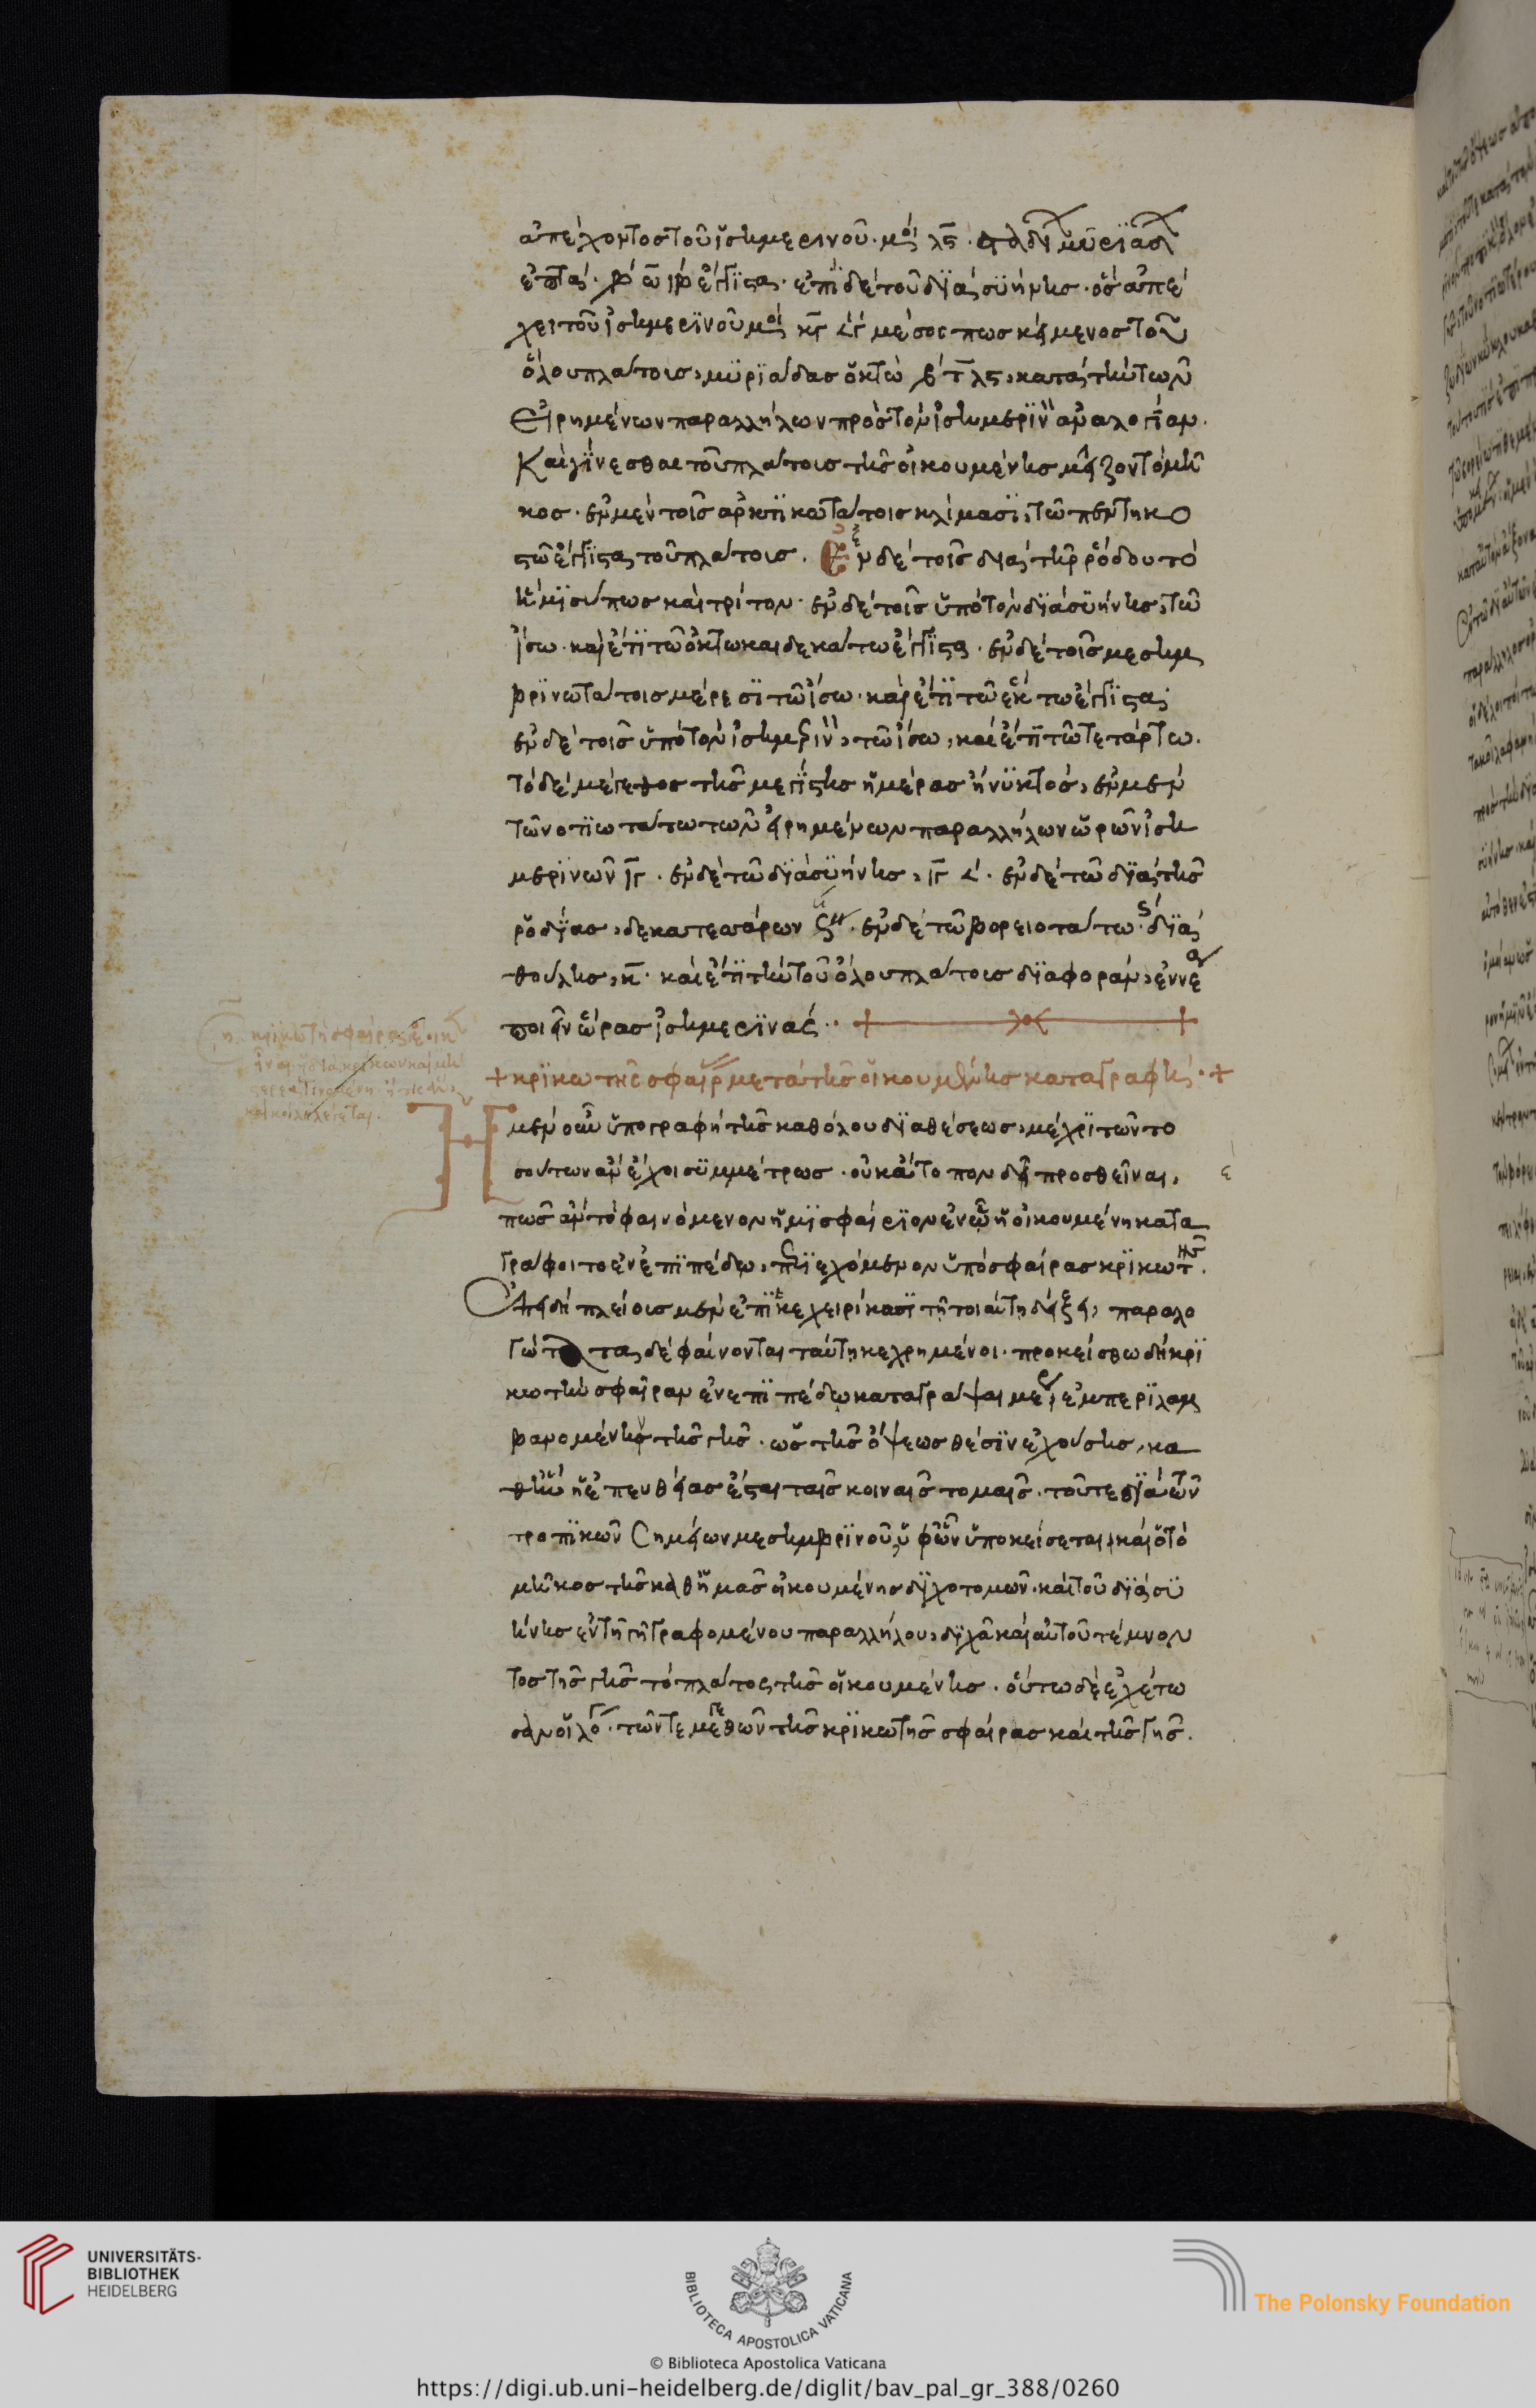 ἀπέχοντος τοῦ ἰσημερινοῦ μοί λϛ
ἑπτά· ἔγγιστα· ἐπὶ δὲ τοῦ διὰ συήνης· ὃς ἀπέ
χει τοῦ ἰσημερινοῦ μοί κγ μέσος πως κείμενος τοῦ
ὅλου πλάτους, μυριάδας ὀκτὼ β τλϛ, κατὰ τὴν τῶν
εἰρημένων παραλλήλων πρὸς τὸν ἰσημερινὸν ἀναλογίαν.
Καὶ γίνεσθαι τοῦ πλάτους τῆς οἰκουμένης μεῖζον τὸ μῆ
κος· ἐν μὲν τοῖς ἀρκτικωτάτοις κλίμασι, τῷ πεντηκο
στῷ ἔγγιστα τοῦ πλάτους. Ἐν δὲ τοῖς διὰ τῆς ῥόδου τὸ
ἥμισυ πως καὶ τρίτον· ἐν δὲ τοῖς ὑπὸ τὸν διὰ συήνης, τῷ
ἴσῳ· καὶ ἔτι τῷ ὀκτωκαιδεκάτῳ ἔγγιστα· ἐν δὲ τοῖς μεσημ
βρινωτάτοις μέρεσι τῷ ἴσῳ· καὶ ἔτι τῷ ἕκτῳ ἔγγιστα·
ἐν δὲ τοῖς ὑπὸ τὸν ἰσημερινὸν, τῷ ἴσῳ, καὶ ἔτι τῷ τετάρτῳ.
Τὸ δὲ μέγεθος τῆς μεγίστης ἡμέρας ἢ νυκτός, ἐν μὲν
τῷ νοτιωτάτῳ τῶν εἰρημένων παραλλήλων ὡρῶν ἰση
μερινῶν ιγ· ἐν δὲ τῷ διὰ συήνης, ιγ · ἐν δὲ τῷ διὰ τῆς
ῥοδίας, δεκατεσσάρων · ἐν δὲ τῷ βορειοτάτῳ· διὰ
θούλης, κ· καὶ ἔτι τὴν τοῦ ὅλου πλάτους διαφορὰν, ἐννέα
ποιεῖν ὥρας ἰσημερινάς··
+ κρικωτῆς σφαίρας μετὰ τῆς οἰκουμένης καταγραφή· +
Η μὲν οὖν ὑπογραφὴ τῆς καθόλου διαθέσεως, μέχρι τῶν το
σούτων ἂν ἔχοι συμμέτρως· οὐκ ἄτοπον δὲ προσθεῖναι,
πῶς ἂν τὸ φαινόμενον ἡμισφαίριον ἐν ᾧ ἡ οἰκουμένη κατα
γράφοιτο ἐν ἐπιπέδῳ, περιεχόμενον ὑπὸ σφαίρας κρικωτῆς.
Ἐπειδὴ πλείους μὲν ἐπικεχειρήκασι τῇ τοιαύτῃ δείξει, παραλο
γώτατα δὲ φαίνονται ταύτῃ κεχρημένοι· προκείσθω δὴ κρι
κωτὴν σφαῖραν ἐν ἐπιπέδῳ καταγράψαι μέρει ἐμπεριλαμ
βανομένης τῆς γῆς· ὡς τῆς ὄψεως θέσιν ἐχούσης, κα
θ' ἣν ἐπ' εὐθείας ἔσται ταῖς κοιναῖς τομαῖς· τοῦ τε διὰ τῶν
τροπικῶν σημείων μεσημβρινοῦ, ὑφ' ὃν ὑποκείσεται, καὶ ὁ τὸ
μῆκος τῆς καθ' ἡμᾶς οἰκουμένης διχοτομῶν· καὶ τοῦ διὰ συ
ήνης ἐν τῇ γῇ γραφομένου παραλλήλου, δίχα καὶ αὐτοῦ τέμνον
τος τῆς γῆς τὸ πλάτος τῆς οἰκουμένης· οὕτω δὲ ἐχέτω
σαν οἱ λόγοι· τῶν τε μεγεθῶν τῆς κρικωτῆς σφαίρας καὶ τῆς γῆς.
UNIVERSITÄTS-
BIBLIOTHEK
HEIDELBERG
BIBLIOTECA APOSTOLICA VATICANA
The Polonsky Foundation
© Biblioteca Apostolica Vaticana
https://digi.ub.uni-heidelberg.de/diglit/bav_pal_gr_388/0260